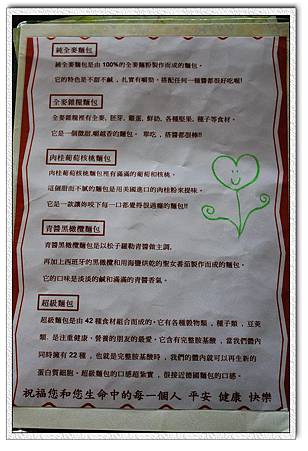 純全麥麵包
純全麥麵包是由 100%的全麥麵粉製作而成的麵包。
它的特色是不甜不鹹，扎實有嚼勁，搭配任何一種醬都很好吃喔!
全麥雜糧麵包
全麥雜糧裡有全麥，胚芽，雞蛋，鮮奶，各種堅果，種子等食材。
它是一個微甜，鹹香的麵包。 單吃，搭醬都很棒!!
肉桂葡萄核桃麵包
肉桂葡萄核桃麵包裡有滿滿的葡萄和核桃。
這個甜而不膩的麵包是用美國進口的肉桂粉來提味。
它是一款讓妳咬下每一口都愛得很過癮的麵包!!
青醬黑橄欖麵包
青醬黑橄欖麵包是以松子羅勒青醬做主調，
再加上西班牙的黑橄欖和用海鹽烘乾的聖女番茄製作而成的麵包。
它的口味是淡淡的鹹和滿滿的青醬香氣。
超級麵包
超級麵包是由 42 種食材組合而成的。它有各種穀物類，種子類，豆莢
類. 是注重健康，營養的朋友的最愛。它含有完整胺基酸，當我們體內
同時擁有 22 種，也就是完整胺基酸時，我們的體內就可以再生新的
蛋白質細胞。超級麵包的口感超紮實，很接近德國麵包的口感。
祝福您和您生命中的每一個人 平安 健康 快樂